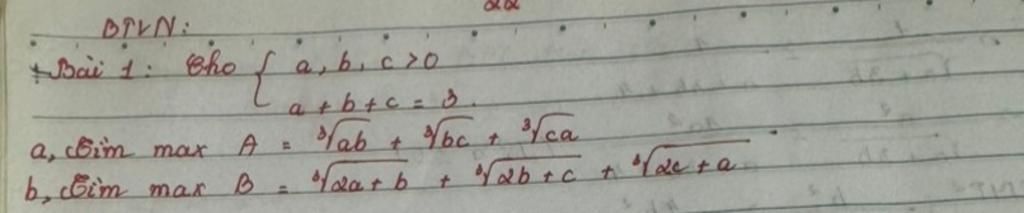 BTVN:
+ Bài 1: Cho { a, b, c > 0
a + b + c = 3.
a, Tìm max A = ∛ab + ∛bc + ∛ca
b, Tìm max B = ∛2a + b + ∛2b + c + ∛2c + a